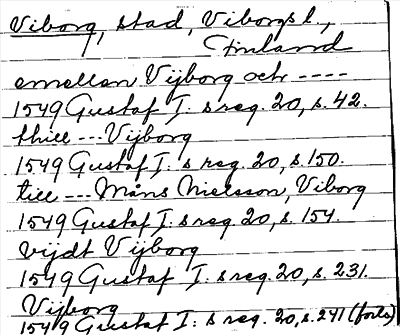 Viborg, stad, Viborgs l.,
Finland
emellan Vijborg och ----
1549 Gustaf I: s reg. 20, s. 42.
thill --- Vijborg
1549 Gustaf I: s reg. 20, s. 150.
till --- Måns Nielsson, Viborg
1549 Gustaf I: s reg. 20, s. 154.
vijdt Vijborg
1549 Gustaf I: s reg. 20, s. 231.
Vijborg
1549 Gustaf I: s reg. 20, s. 241 (forts)